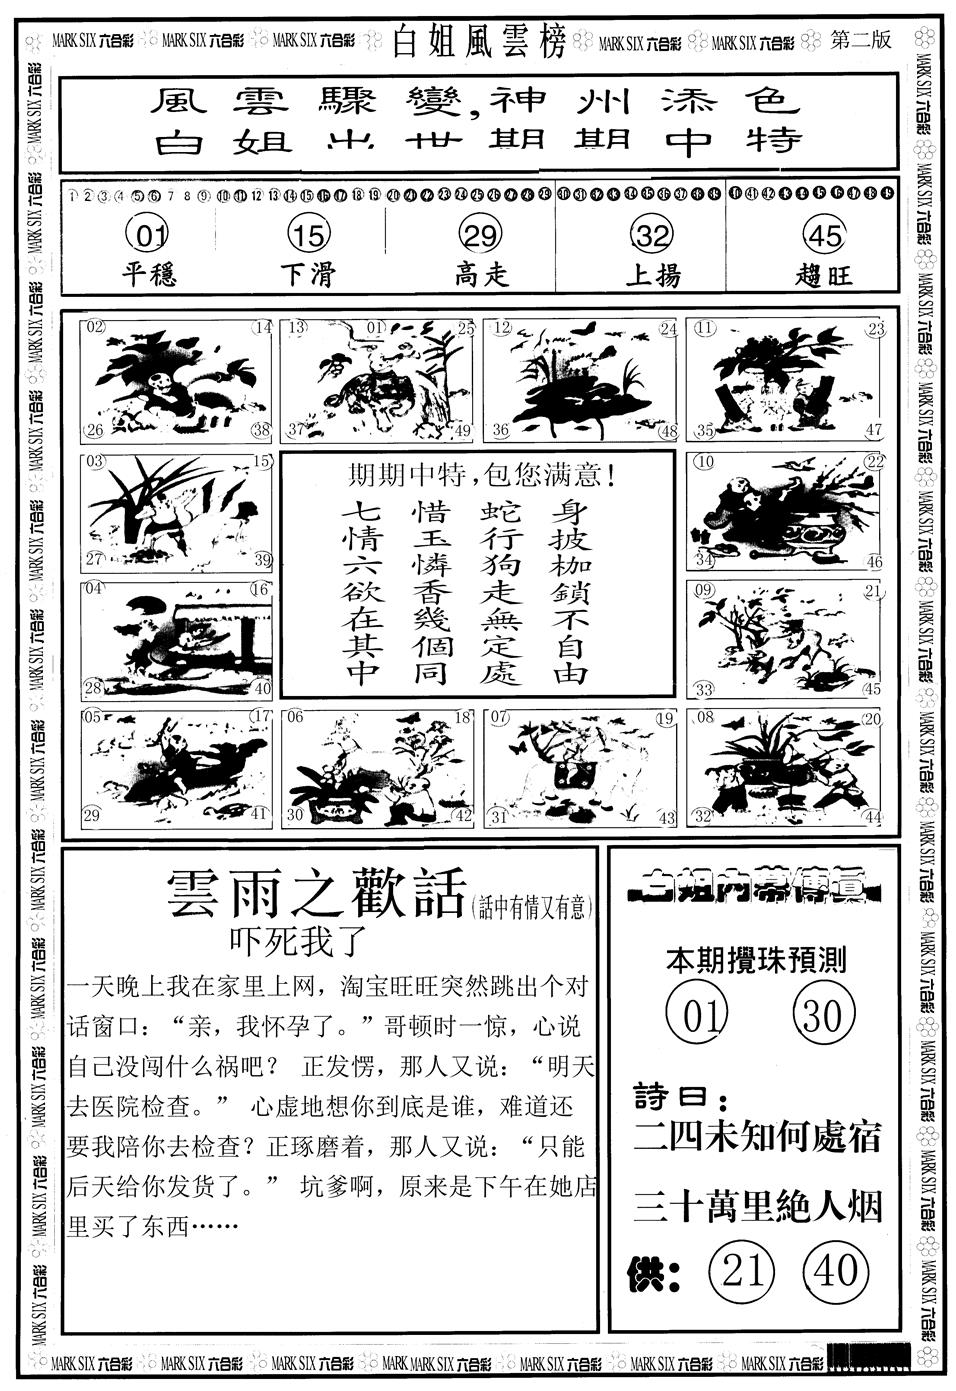 MARK SIX 六合彩 MARK SIX 六合彩 MARK SIX 六合彩 白姐風雲榜 MARK SIX 六合彩 MARK SIX 六合彩 第二版
風雲驟變,神州添色
白姐出世期期中特
1 2 3 4 5 6 7 8 9 10 11 12 13 14 15 16 17 18 19 20 21 22 23 24 25 26 27 28 29 30 31 32 33 34 35 36 37 38 39 40 41 42 43 44 45 46 47 48 49
01 15 29 32 45
平穩 下滑 高走 上揚 趨旺
02 14 13 01 25 12 24 11 23
26 38 37 49 36 48 35 47
03 15
27 39
04 16
28 40
期期中特,包您满意!
身披枷鎖不自由
蛇行狗走無定處
惜玉憐香幾個同
七情六欲在其中
10 22
34 46
09 21
33 45
05 17 06 18 07 19 08 20
29 41 30 42 31 43 32 44
雲雨之歡話(話中有情又有意)
吓死我了
一天晚上我在家里上网，淘宝旺旺突然跳出个对
话窗口：“亲，我怀孕了。”哥顿时一惊，心说
自己没闯什么祸吧？ 正发愣，那人又说：“明天
去医院检查。” 心虚地想你到底是谁，难道还
要我陪你去检查？正琢磨着，那人又说：“只能
后天给你发货了。” 坑爹啊，原来是下午在她店
里买了东西……
白姐内幕傳真
本期攪珠預測
01 30
詩曰：
二四未知何處宿
三十萬里絶人烟
供： 21 40
MARK SIX 六合彩 MARK SIX 六合彩 MARK SIX 六合彩 MARK MARK SIX 六合彩 MARK SIX 六合彩 MARK SIX 六合彩 MARK SIX 六合彩